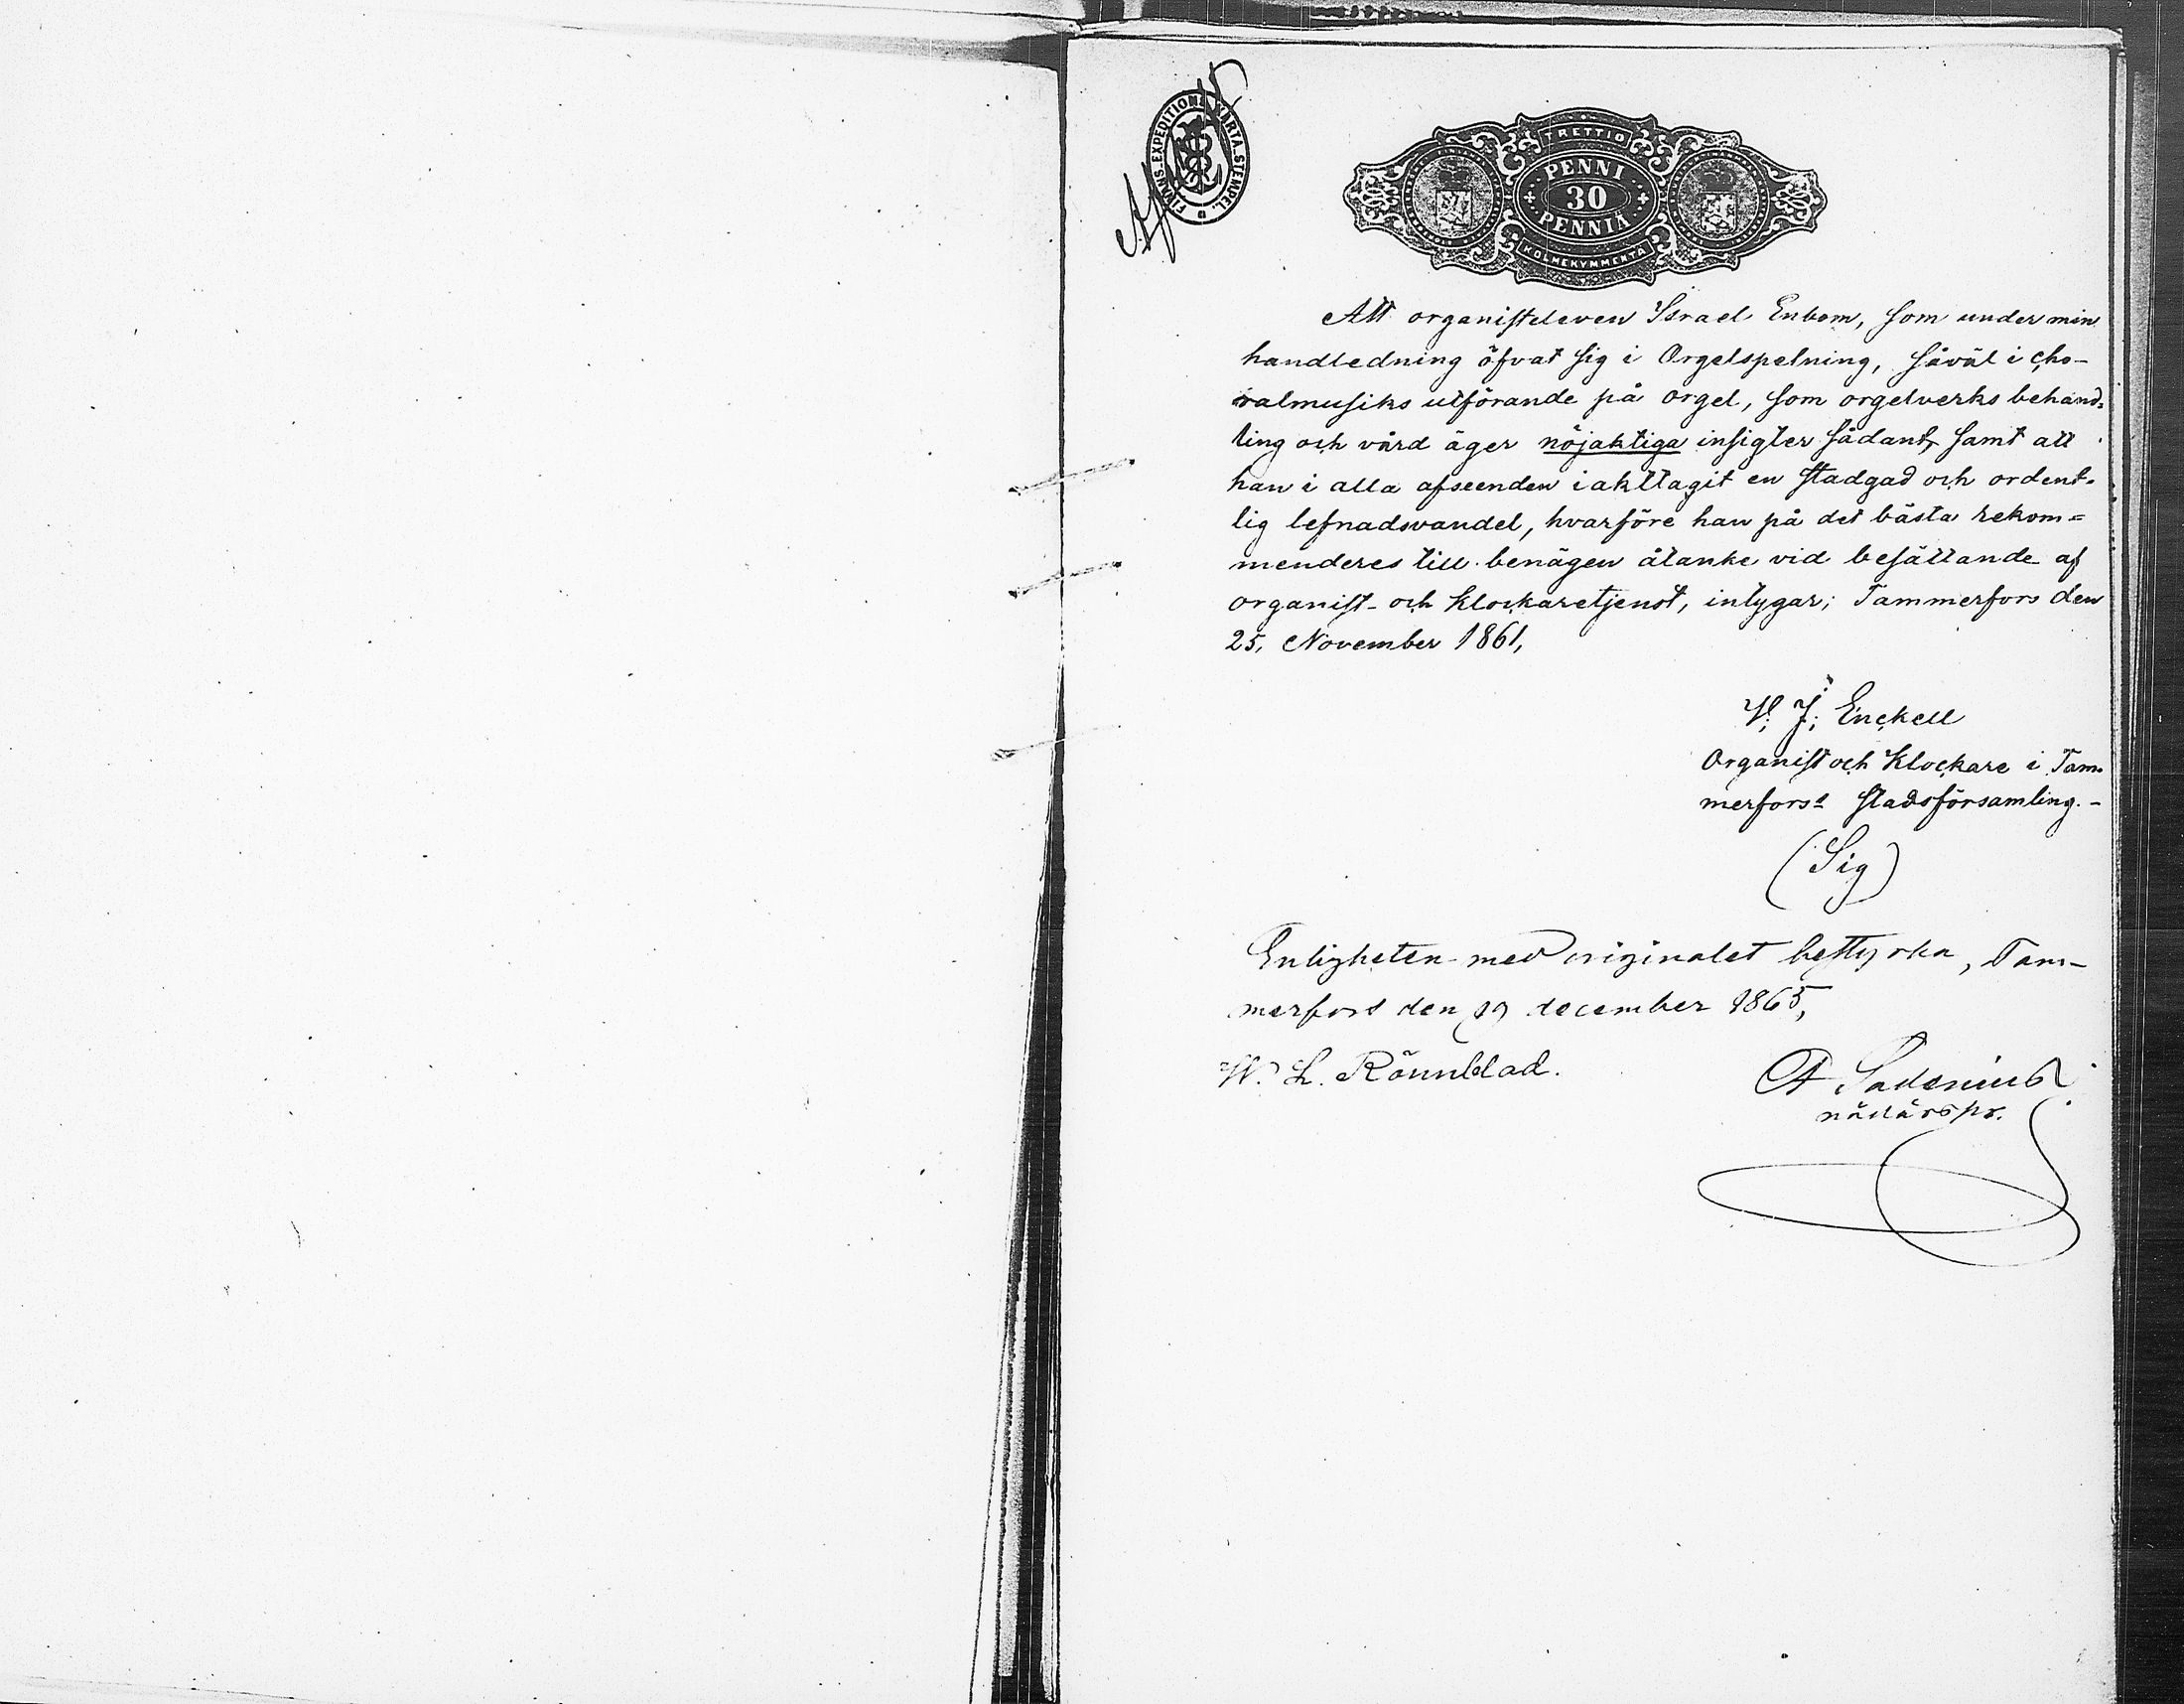 FINNS. EXPEDITIONS KARTA. STEMPEL.
TRETTIO
PENNI
30
PENNIÄ
KOLMEKYMMENTÄ
Att organisteleven Israel Enbom, som under min
handledning öfvat sig i Orgelspelning, såväl i cho-
ralmusiks utförande på orgel, som orgelverks behand=
ling och vård äger nöjaktiga insigter sådant, samt att
han i alla afseenden iakttagit en stadgad och ordent=
lig lefnadsvandel, hvarföre han på det bästa rekom=
menderes till benägen åtanke vid besättande af
organist- och klockaretjenst, intygar; Tammerfors den
25, November 1861,
J; Enckell
Organist och Klockare i Tam=
merfors stadsförsamling.-
(Sig)
Enligheten med originalet bestyrka, Tam-
merfors den 19 december 1865,
W. L. Rönnblad.